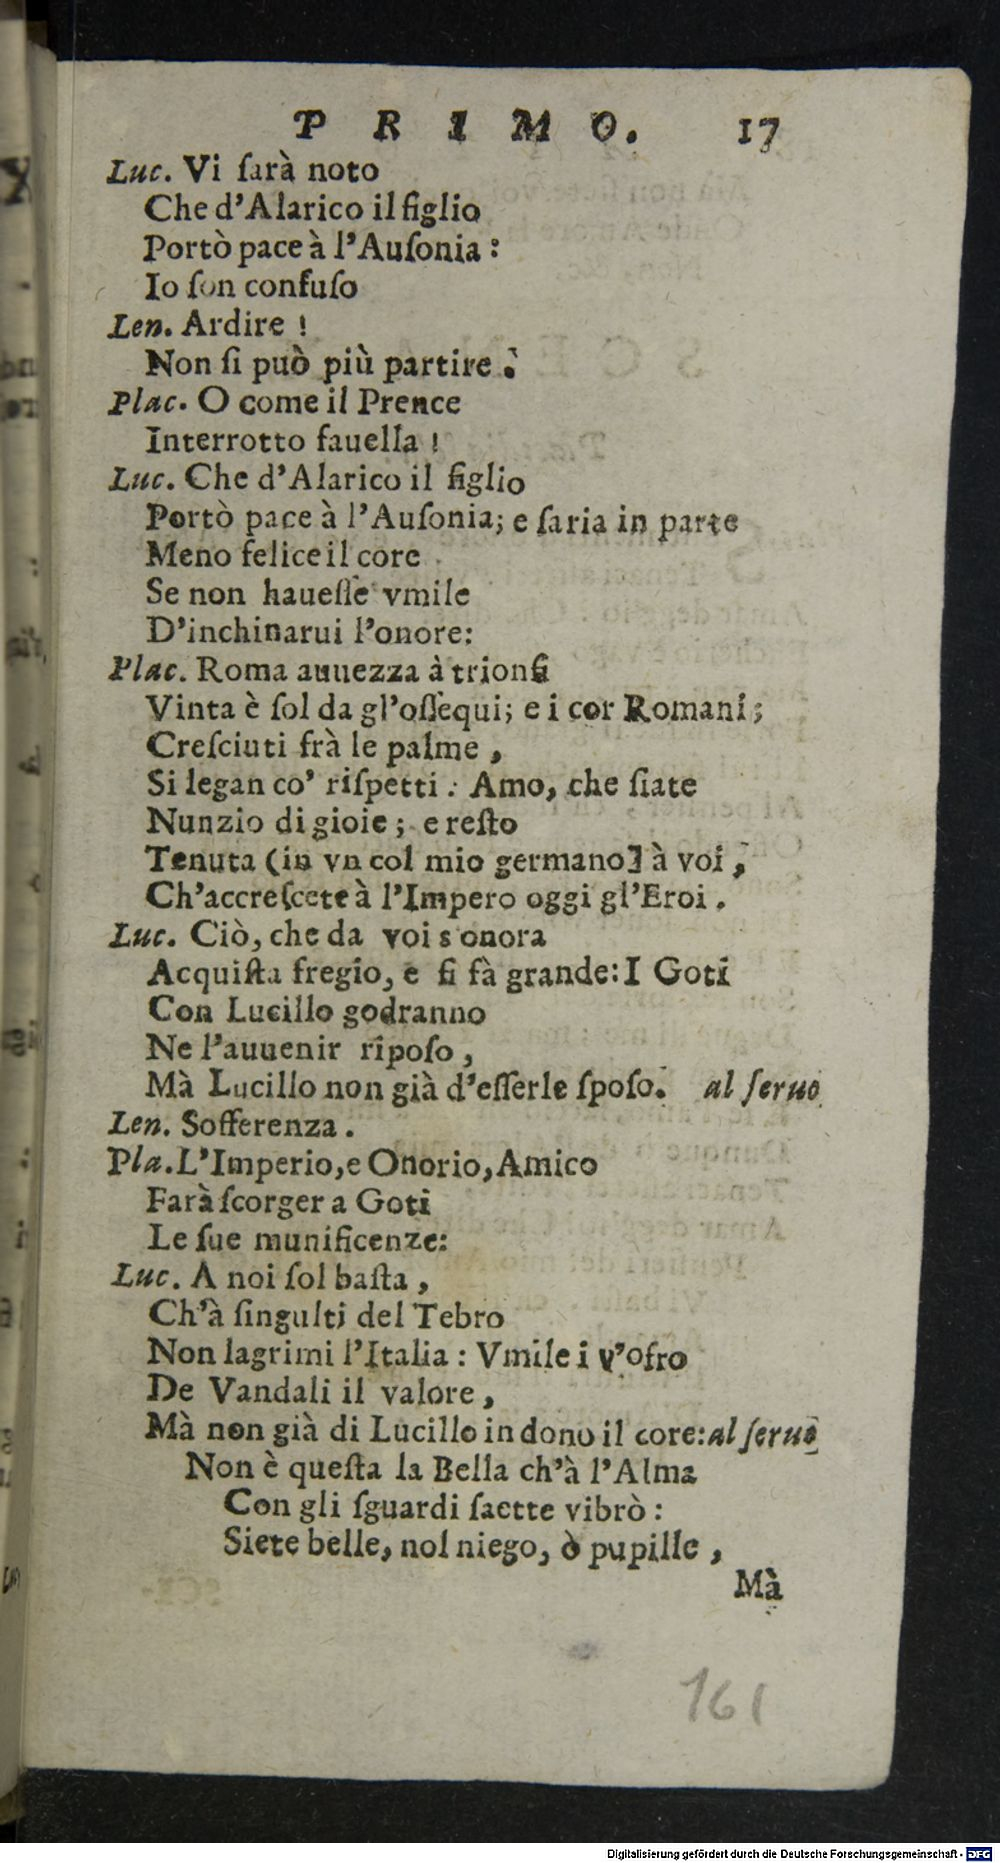 PRIMO. 17
Luc. Vi ſarà noto
Che d'Alarico il figlio
Portò pace à l'Auſonia:
Io ſon confuſo
Len. Ardire!
Non ſi può più partire.
Plac. O come il Prence
Interrotto fauella!
Luc. Che d'Alarico il figlio
Portò pace à l'Auſonia; e ſaria in parte
Meno felice il core
Se non haueſſe vmile
D'inchinarui l'onore:
Plac. Roma auuezza à trionfi
Vinta è ſol da gl'oſſequi; e i cor Romani;
Creſciuti frà le palme,
Si legan co' riſpetti: Amo, che ſiate
Nunzio di gioie; e reſto
Tenuta (in vn col mio germano] à voi,
Ch'accreſcete à l'Impero oggi gl'Eroi.
Luc. Ciò, che da voi s onora
Acquiſta fregio, e ſi fà grande: I Goti
Con Lucillo godranno
Ne l'auuenir ripoſo,
Mà Lucillo non già d'eſſerle ſpoſo. al ſeruo
Len. Sofferenza.
Pla. L'Imperio, e Onorio, Amico
Farà ſcorger a Goti
Le ſue munificenze:
Luc. A noi ſol baſta,
Ch'à ſingulti del Tebro
Non lagrimi l'Italia: Vmile i v'ofro
De Vandali il valore,
Mà non già di Lucillo in dono il core: al ſeruo
Non è queſta la Bella ch'à l'Alma
Con gli ſguardi ſaette vibrò:
Siete belle, nol niego, ò pupille,
Mà
161
Digitalisierung gefördert durch die Deutsche Forschungsgemeinschaft - DFG